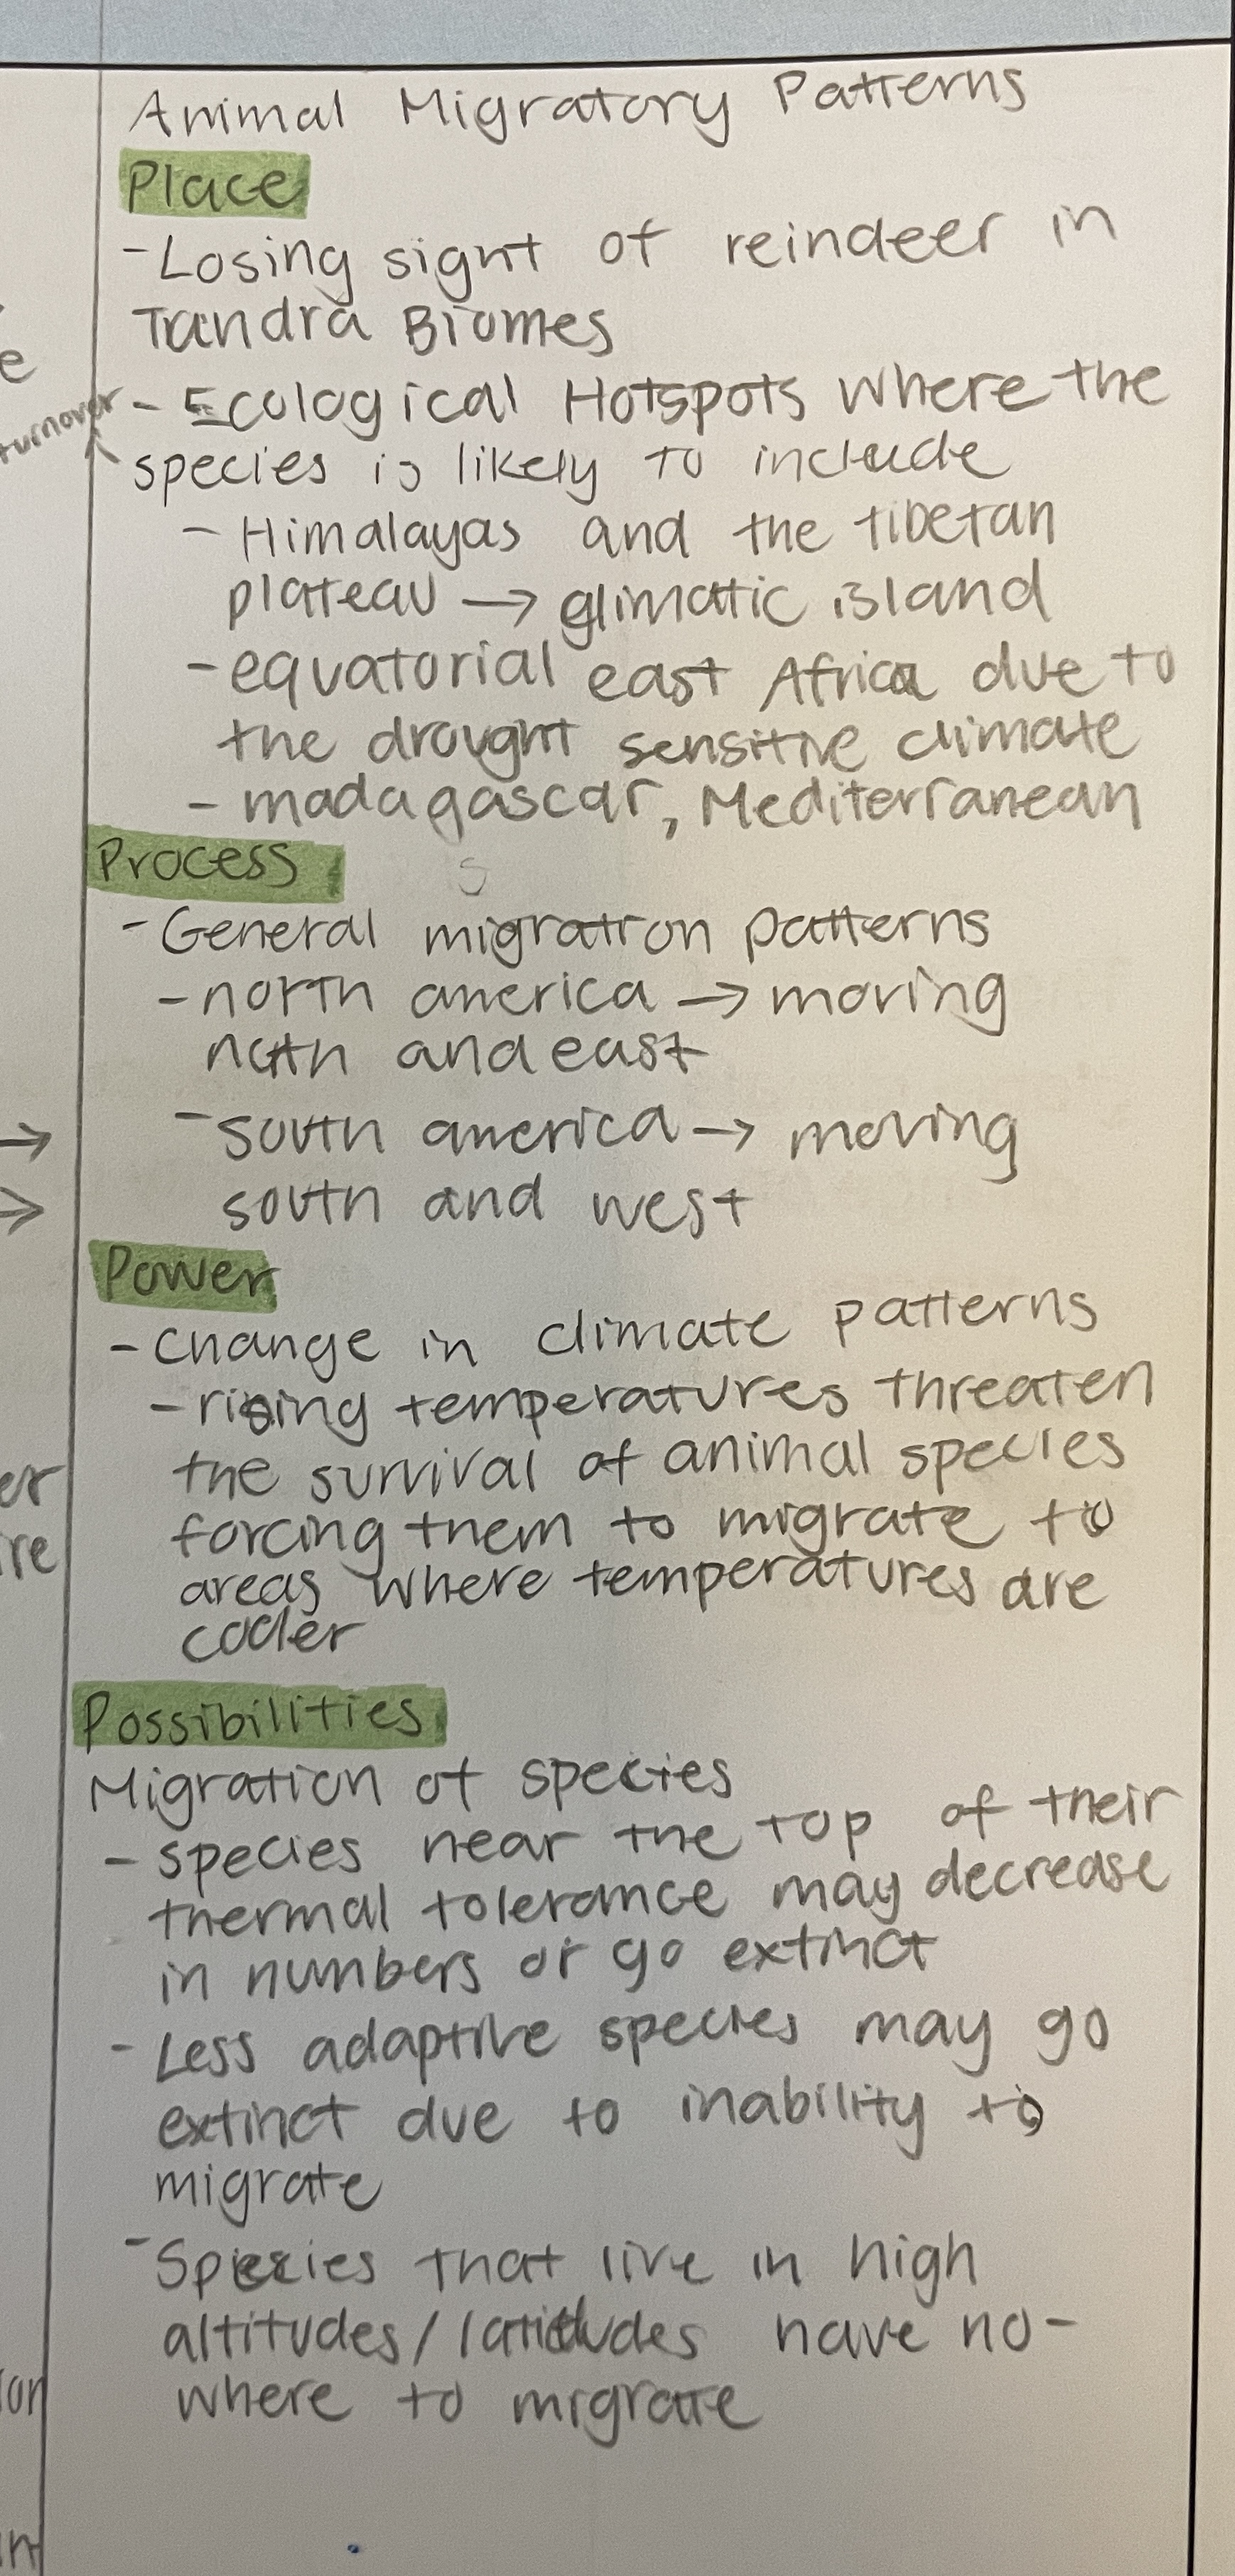 Animal Migratory Patterns
Place
- Losing signt of reindeer in
Tandra Biomes
turnover
- Ecological Hotspots where the
species is likely to include
- Himalayas and the tibetan
plateau → glimatic island
- equatorial east Africa due to
the drought sensitive climate
- madagascar, Mediterranean
Process
s
- General migration patterns
- north america → moving
north and east
- south america → moving
south and west
Power
- change in climate patterns
- rising temperatures threaten
the survival of animal species
forcing them to migrate to
areas where temperatures are
cooler
Possibilities
Migration of species
- species near the top of their
thermal tolerance may decrease
in numbers or go extinct
- Less adaptive species may go
extinct due to inability to
migrate
- Species that live in high
altitudes/latitudes have no-
where to migrate